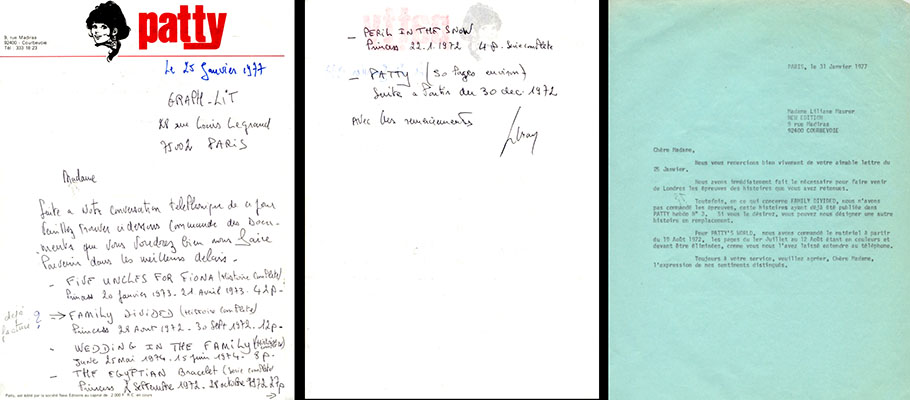 9, rue Madiras
92400 - Courbevoie
Tél : 333 18 23
patty
Le 25 Janvier 1977
GRAPH-LIT
28 rue Louis Legrand
75002 PARIS
Madame
Suite a notre conversation telephonique de ce jour
Veuillez trouver ci dessous Commande des Docu-
ments que vous Voudrez bien nous faire
Parvenir dans les meilleurs delais -
- FIVE UNCLES FOR FIONA (Histoire complète)
Princess 20 janvier 1973 - 21 Avril 1973 - 42 p -
deja
? => FAMILY DIVIDED (Histoire complète)
Princess 28 Aout 1972 - 30 Sept 1972 - 12p -
- WEDDING IN THE FAMILY
June 25 mai 1974 - 15 juin 1974 - 8 p -
- THE EGYPTIAN Bracelet (Serie complète
Princess 2 Septembre 1972 - 28 octobre 1972 27p
Patty, est édité par la société Neo Editions au capital de 2.000 F. R.C. en cours
- PERIL IN THE SNOW
Princess 22.1.1972 4 p. Serie complète
- PATTY (50 Pages environ)
Suite a Partir du 30 dec 1972
Avec Nos remerciements
PARIS, le 31 Janvier 1977
Madame Liliane Maurer
NEO EDITION
9 rue Madiras
92400 COURBEVOIE
Chère Madame,
Nous vous remercions bien vivement de votre aimable lettre du
25 Janvier.
Nous avons immédiatement fait le nécessaire pour faire venir
de Londres les épreuves des histoires que vous avez retenues.
Toutefois, en ce qui concerne FAMILY DIVIDED, nous n'avons
pas commandé les épreuves, cette histoire ayant déjà été publiée dans
PATTY hebdo N° 3. Si vous le désirez, vous pouvez nous désigner une autre
histoire en remplacement.
Pour PATTY'S WORLD, nous avons commandé le matériel à partir
du 19 Août 1972, les pages du 1er Juillet au 12 Août étant en couleurs et
devant être éliminées, comme vous nous l'avez laissé entendre au téléphone.
Toujours à votre service, veuillez agréer, Chère Madame,
l'expression de nos sentiments distingués.